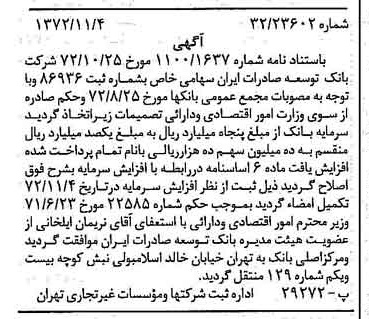 شماره ۳۲/۲۳۶۰۲ ۱۳۷۲/۱۱/۴
آگهی
باستناد نامه شماره ۱۱۰۰/۱۶۳۷ مورخ ۷۲/۱۰/۲۵ شرکت
بانک توسعه صادرات ایران سهامی خاص بشماره ثبت ۸۶۹۳۶ وبا
توجه به مصوبات مجمع عمومی بانکها مورخ ۷۲/۸/۲۵ وحکم صادره
از سوی وزارت امور اقتصادی ودارائی تصمیمات زیراتخاذ گردید
سرمایه بانک از مبلغ پنجاه میلیارد ریال به مبلغ یکصد میلیارد ریال
منقسم به ده میلیون سهم ده هزارریالی بانام تمام پرداخت شده
افزایش یافت ماده ۶ اساسنامه دررابطه با افزایش سرمایه بشرح فوق
اصلاح گردید ذیل ثبت از نظر افزایش سرمایه درتاریخ ۷۲/۱۱/۴
تکمیل امضاء گردید بموجب حکم شماره ۲۲۵۸۵ مورخ ۷۱/۶/۲۳
وزیر محترم امور اقتصادی ودارائی با استعفای آقای نریمان ایلخانی از
عضویت هیئت مدیره بانک توسعه صادرات ایران موافقت گردید
ومرکزاصلی بانک به تهران خیابان خالد اسلامبولی نبش کوچه بیست
ویکم شماره ۱۲۹ منتقل گردید.
پ-۲۹۲۷۲ اداره ثبت شرکتها ومؤسسات غیرتجاری تهران